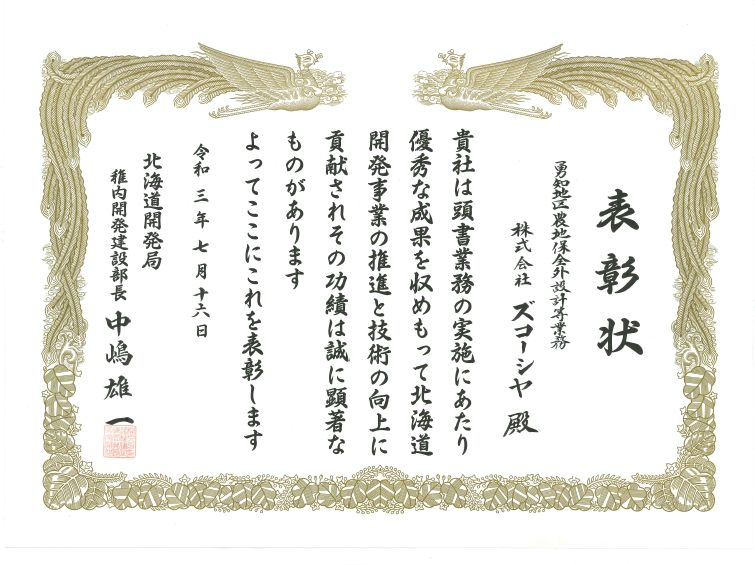 表彰状
勇知地区農地保全外設計等業務
株式会社 ズコーシヤ 殿
貴社は頭書業務の実施にあたり
優秀な成果を収めもって北海道
開発事業の推進と技術の向上に
貢献されその功績は誠に顕著な
ものがあります
よってここにこれを表彰します
令和三年七月十六日
北海道開発局
稚内開発建設部長 中嶋雄一